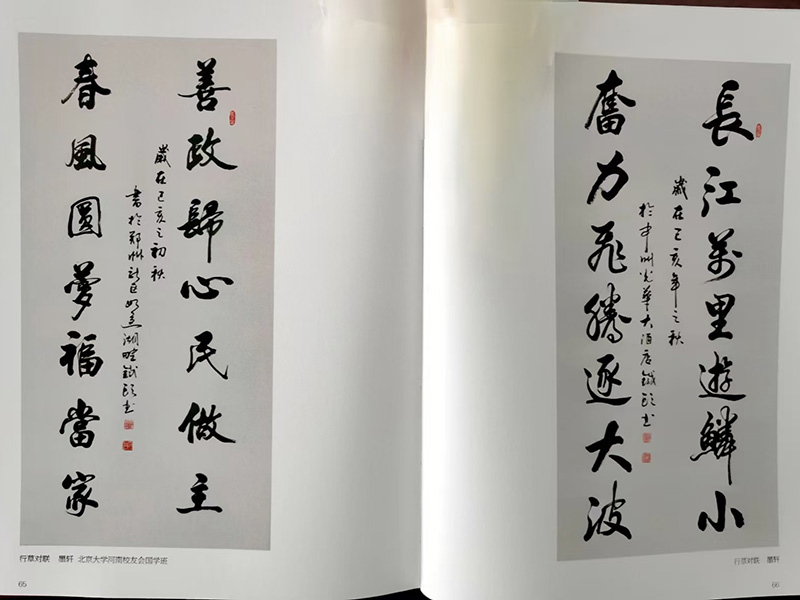 善政歸心民做主
歲在己亥之初秋
書於鄭州新区如意湖畔鐵书
春風圓夢福當家
行草对联 墨轩 北京大学河南校友会国学班
65
長江萬里遊鱗小
歲在己亥年之秋
於中州光華大酒店鐵书
奮力飛騰逐大波
行草对联 墨轩
66